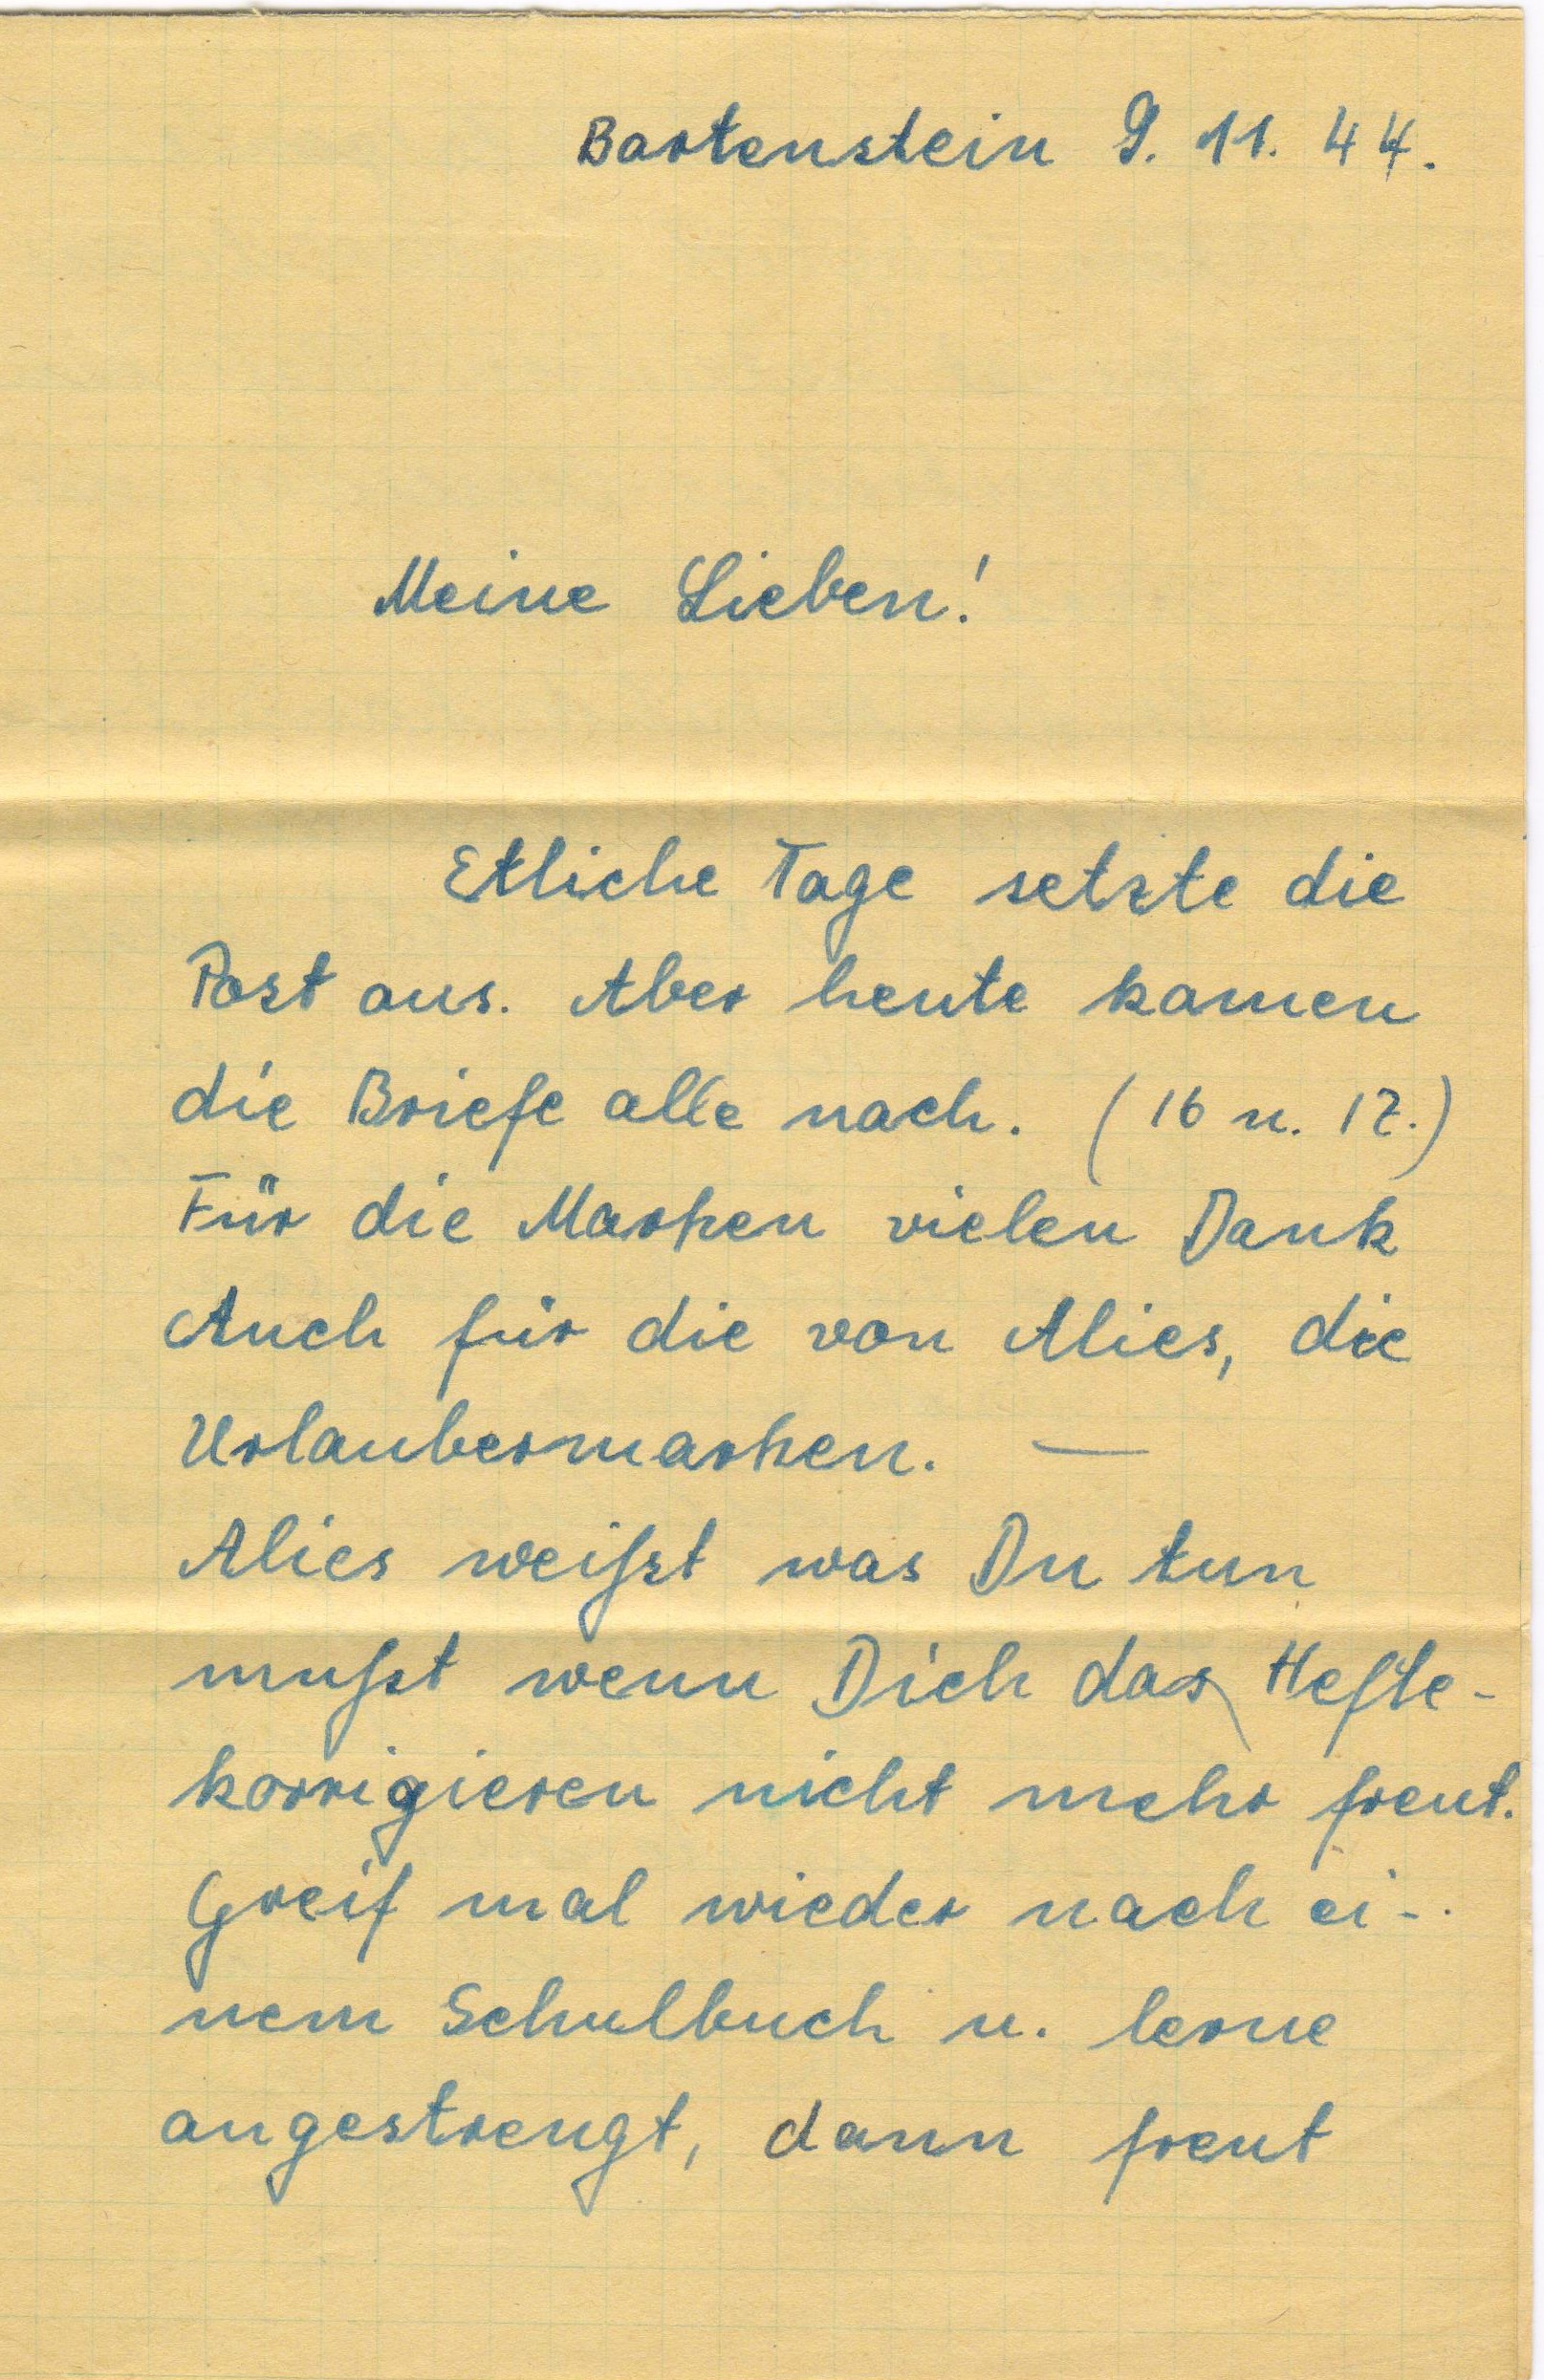 Bartenstein 9. 11. 44.
Meine Lieben!
Etliche Tage setzte die
Post aus. Aber heute kamen
die Briefe alle nach. (16 u. 17.)
Für die Marken vielen Dank
Auch für die von Alies, die
Urlaubermarken. —
Alies weißt was Du tun
mußt wenn Dich das Hefte-
korrigieren nicht mehr freut.
Greif mal wieder nach ei-
nem Schulbuch u. lerne
angestrengt, dann freut